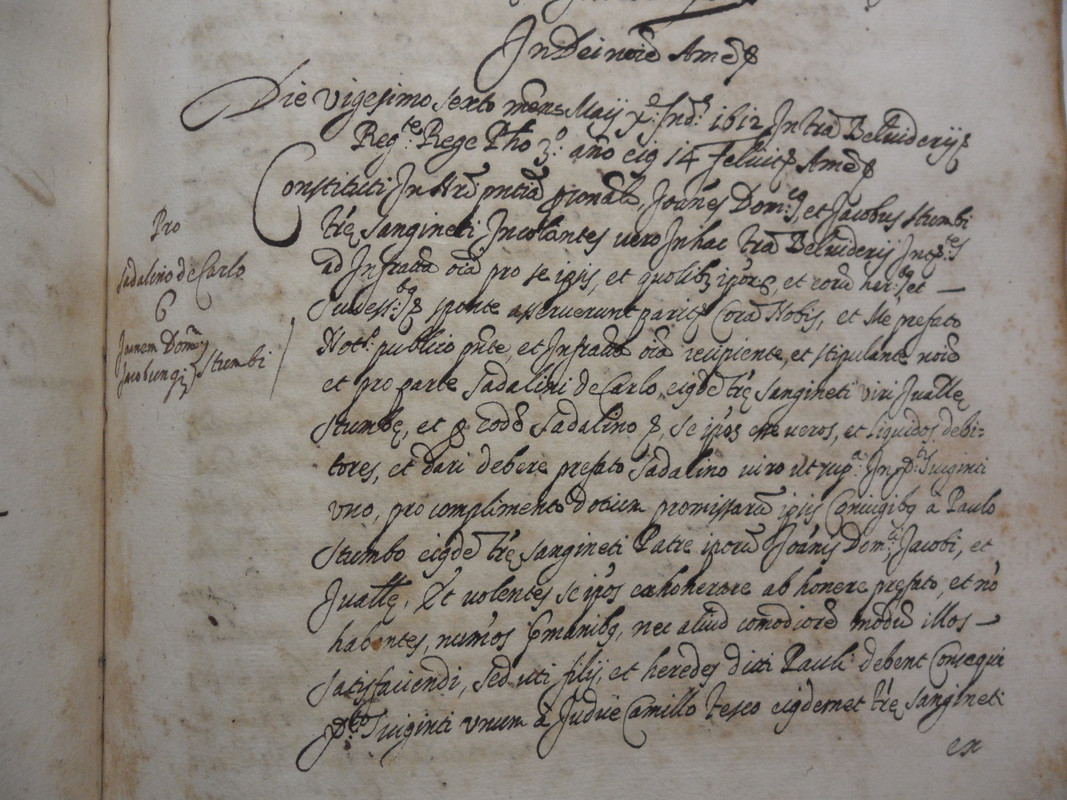 In Dei noīe Amē
Die vigesimo sexto mens Maij x.ᵉ Ind.ˢ 1612 In trā Belviderij
Reg.ᵗᵉ Rege Phō 3.º año eiq 14 Felicit Amē
Constituti In Nrā pntiā psonalr, Joānes Dom.ᶜᵘˢ, et Jacobus Stumbi
trę Sangineti Incolantes vero In hac trā Belviderij
ad Infratta oīa pro se ipsis, et quolibȝ ipsor, et eorū her.ᵇq et —
Success.ᵇq sponte asseruerunt parit Corā Nobis, et Me prefato
Not.º publico pnte, et Infratta oīa recipiente, et stipulante noīe
et pro parte Sadalini de Carlo, eiqdē trę Sangineti viri Juallę
Stumbę, et p eodē Sadalino, se ipsos esse veros, et liquidos debi=
tores, et dari debere prefato Sadalino viro ut sup.ᵃ In Viginti
vno, pro complimento dotium promissarū ipsis Coniugibq à Paulo
Stumbo eiqdē trę Sangineti Patre ipsorū Joānis Dom.ᶜⁱ Jacobi, et
Juallę, Et volentes se ipsos exhonerare ab honere prefato, et nō
habentes, num̄os pmanibq, nec aliud comodiorē modū illos —
satisfaciendi, sed uti filij, et heredes dicti Pauli debent Consequi
Viginti vnum à Judice Camillo Teseo eiqdemet trę Sangineti
ex
Pro
Sadalino de Carlo
C
Joanem Dom.ᶜᵘᵐ
Jacobum Stumbi